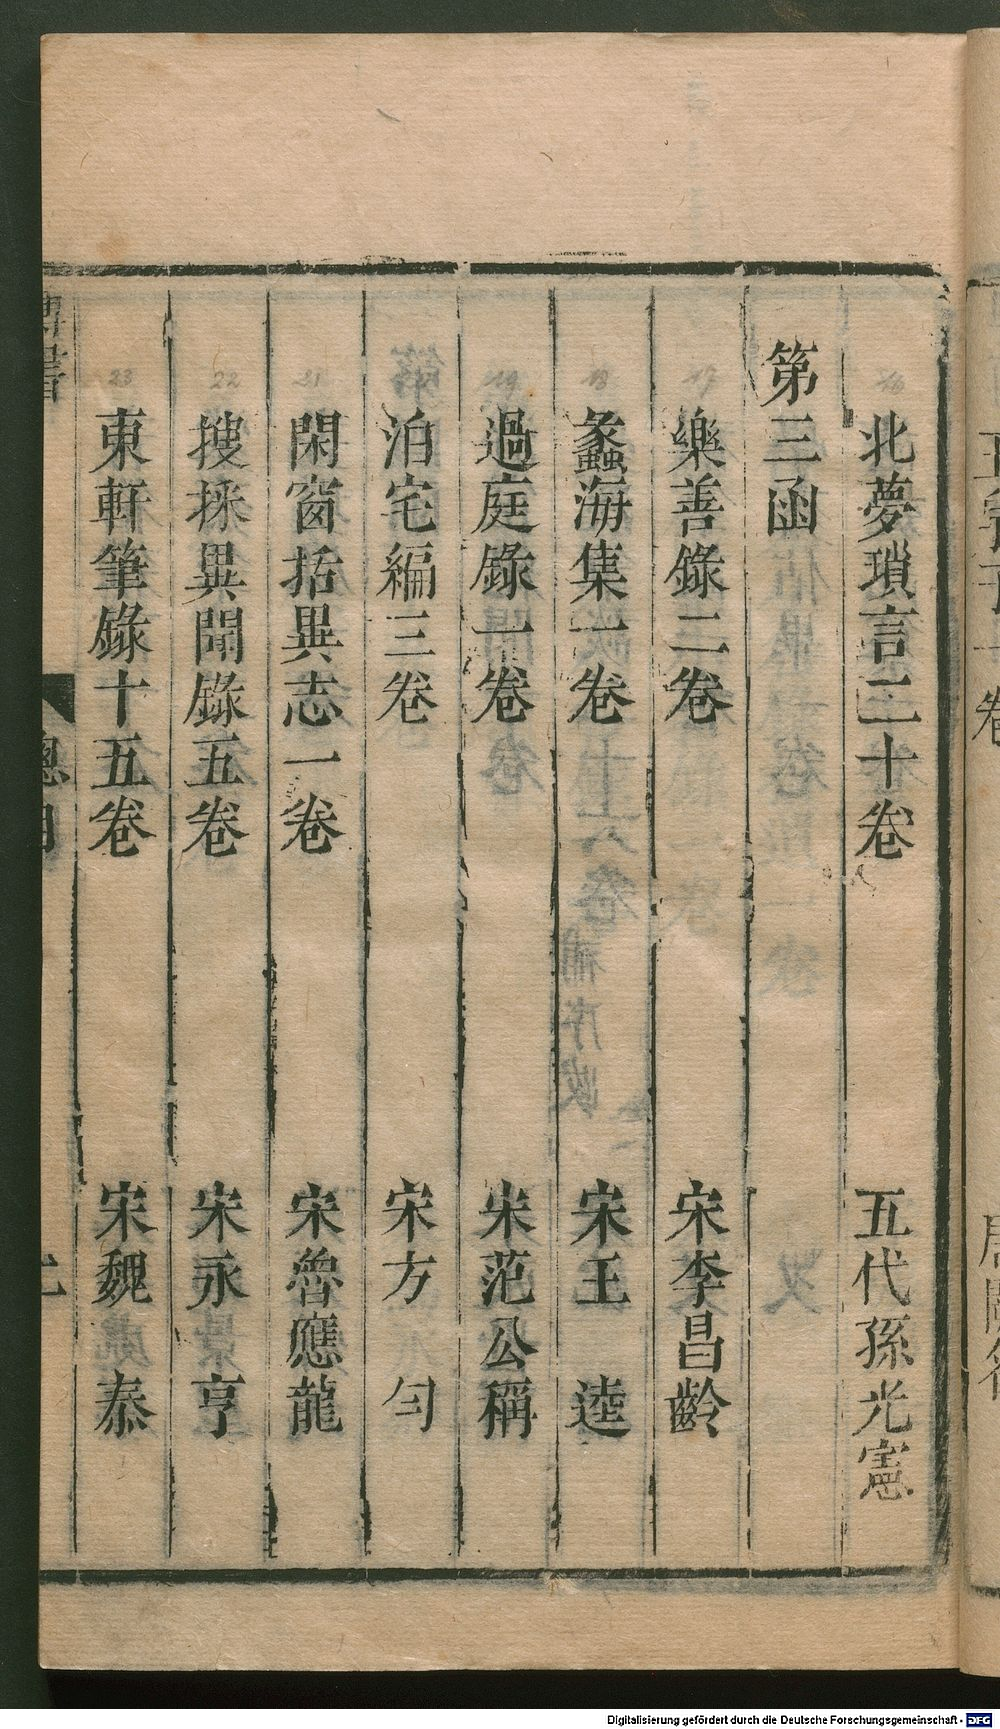 16
北夢瑣言二十卷 五代孫光憲
第三函
17
樂善錄二卷 宋李昌齡
18
蠡海集一卷 宋王逵
19
過庭錄一卷 宋范公稱
泊宅編三卷 宋方勺
21
閑窗括異志一卷 宋魯應龍
22
搜採異聞錄五卷 宋永亨
23
東軒筆錄十五卷 宋魏泰
總目
Digitalisierung gefördert durch die Deutsche Forschungsgemeinschaft - DFG